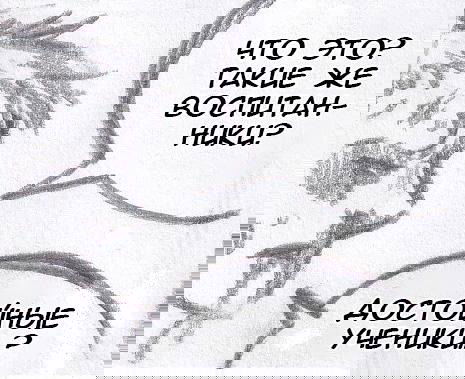 ЧТО ЭТО?
ТАКИЕ ЖЕ
ВОСПИТАН-
НИКИ?
ДОСТОЙНЫЕ
УЧЕНИКИ?